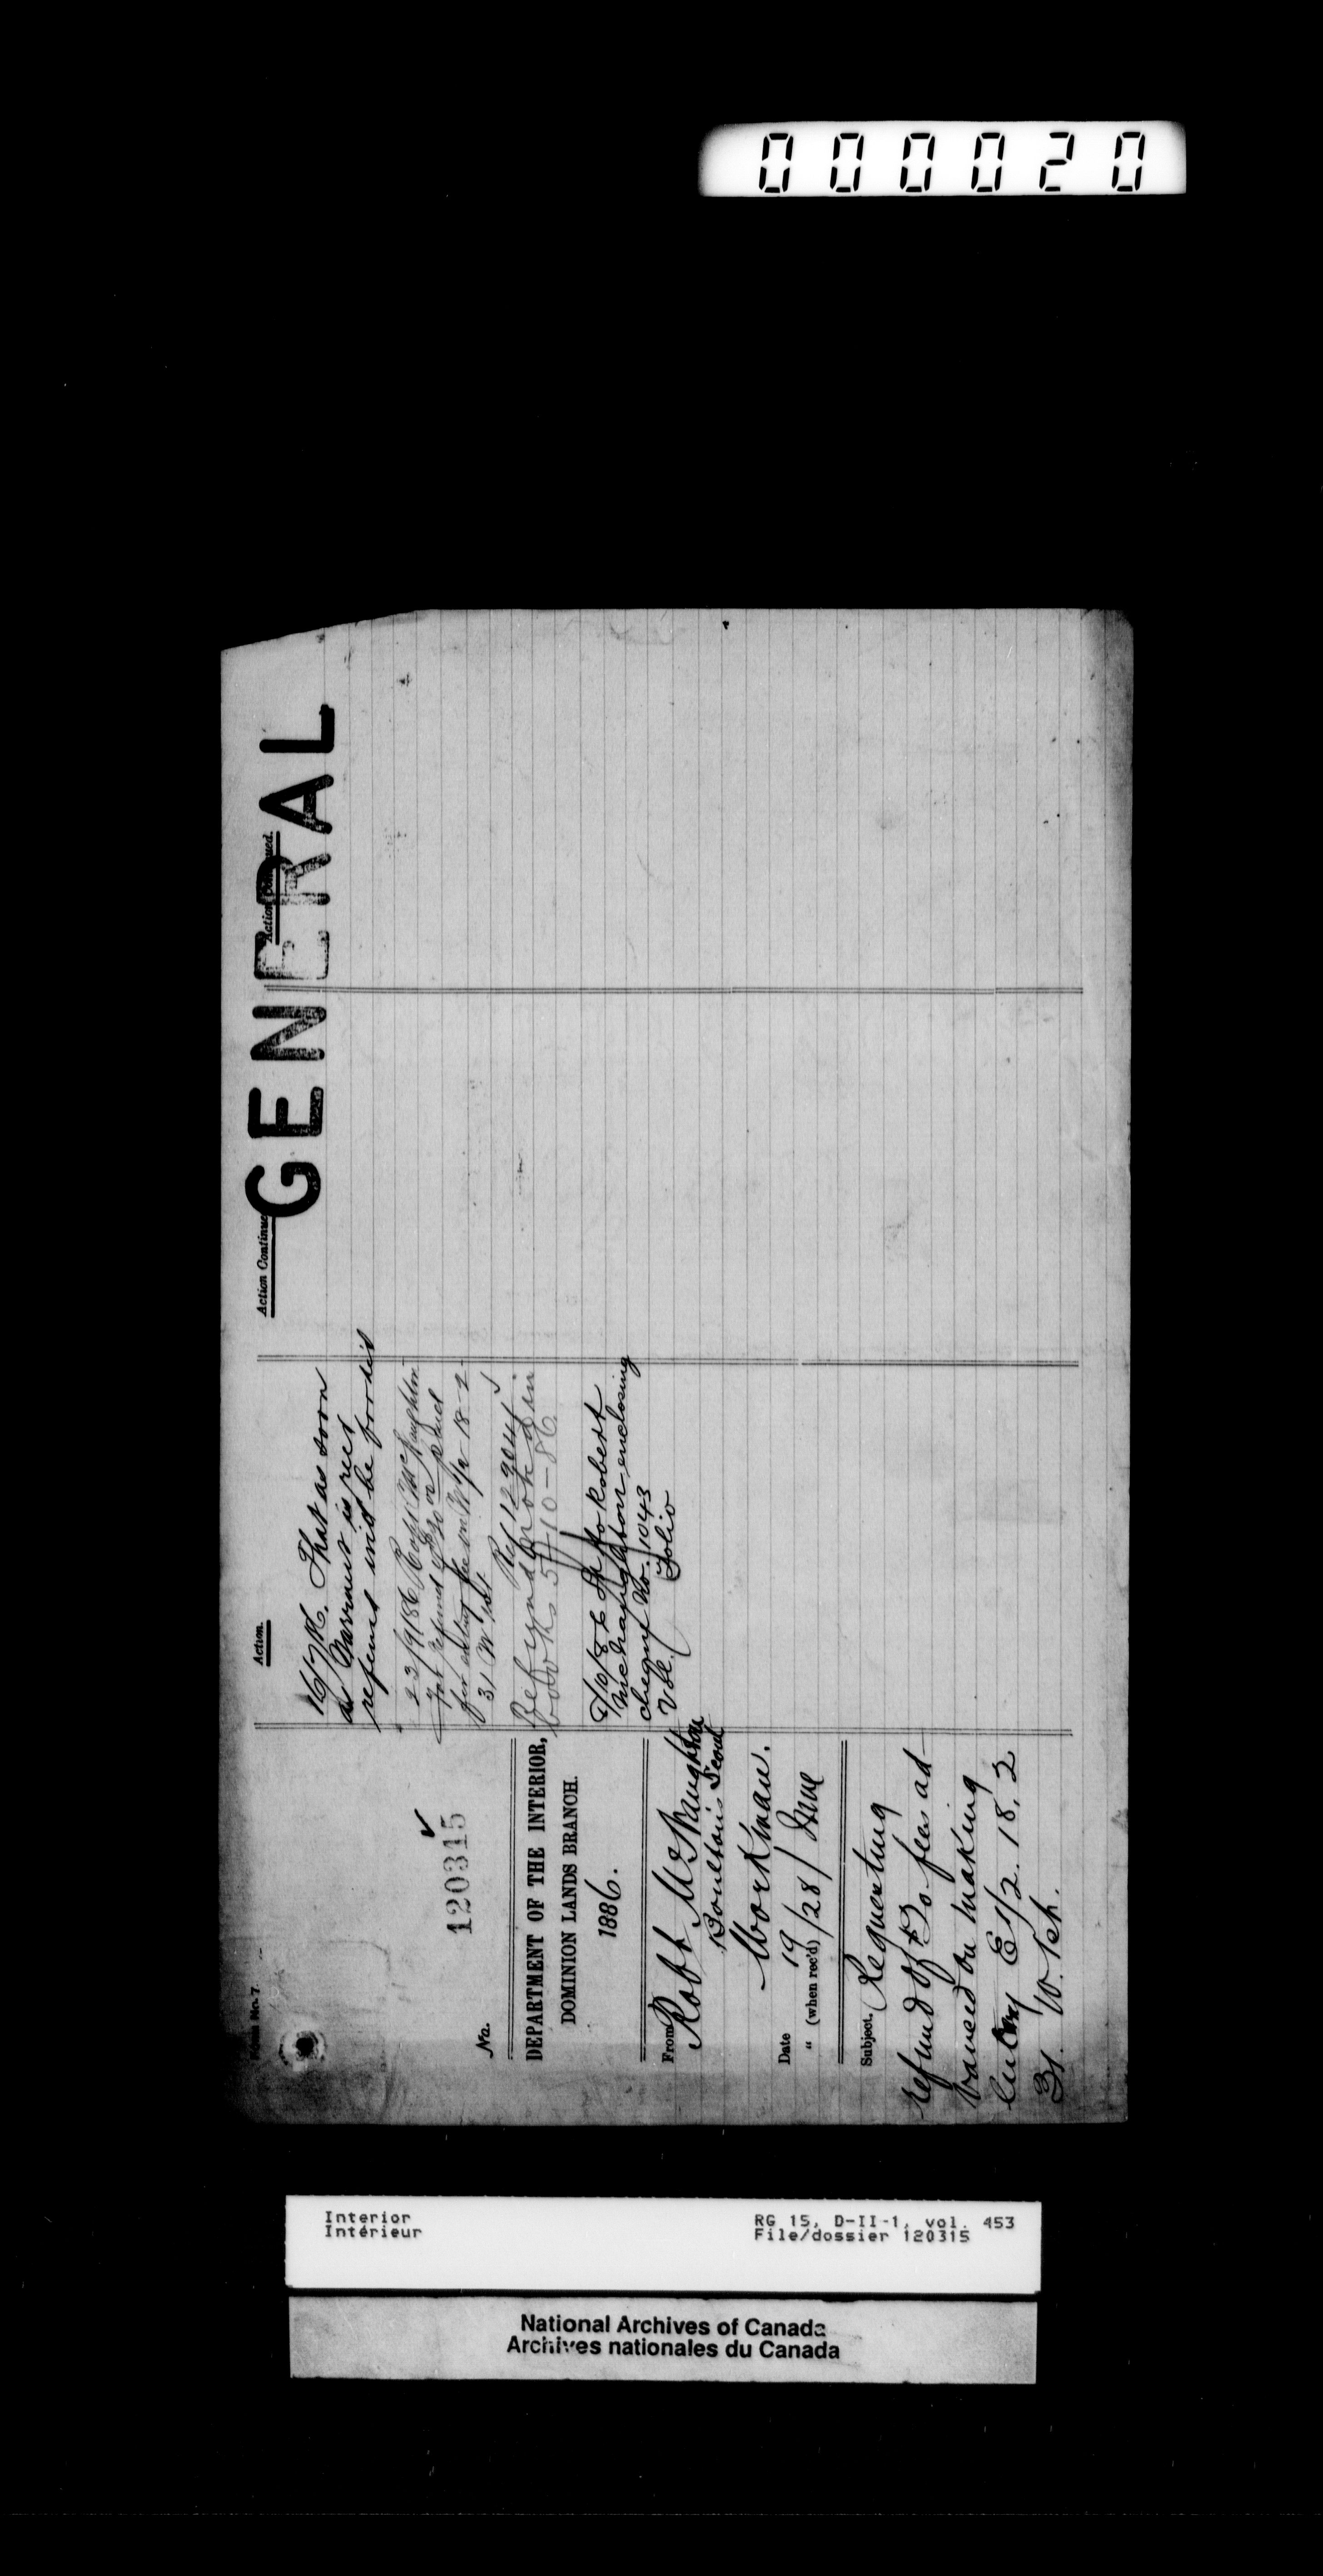 000020
GENERAL
Form No. 7
No. 120315
DEPARTMENT OF THE INTERIOR,
DOMINION LANDS BRANCH.
1886.
From Robt McNaughton
Boulton's Scout
Workman.
Date 19
" (when rec'd) /28/ June
Subject. Requesting
refund of fees ad-
vanced on making
Entry E 1/2. 18. 2
31. W. 1st.
Action.
That as soon
as Warrant is rec'd
refund will be
23/9/86 Robt McNaughton
for refund of $20 pd
for entry fee on 1/2 18-2
31 W 1st
Ref 129041
Refund noted in
books 5-10-86
/10/86 to Robert
McNaughton enclosing
cheque No. 1043
Vol. Folio
Action Continued.
Action Continued.
Interior
Intérieur
RG 15, D-II-1, vol. 453
File/dossier 120315
National Archives of Canada
Archives nationales du Canada